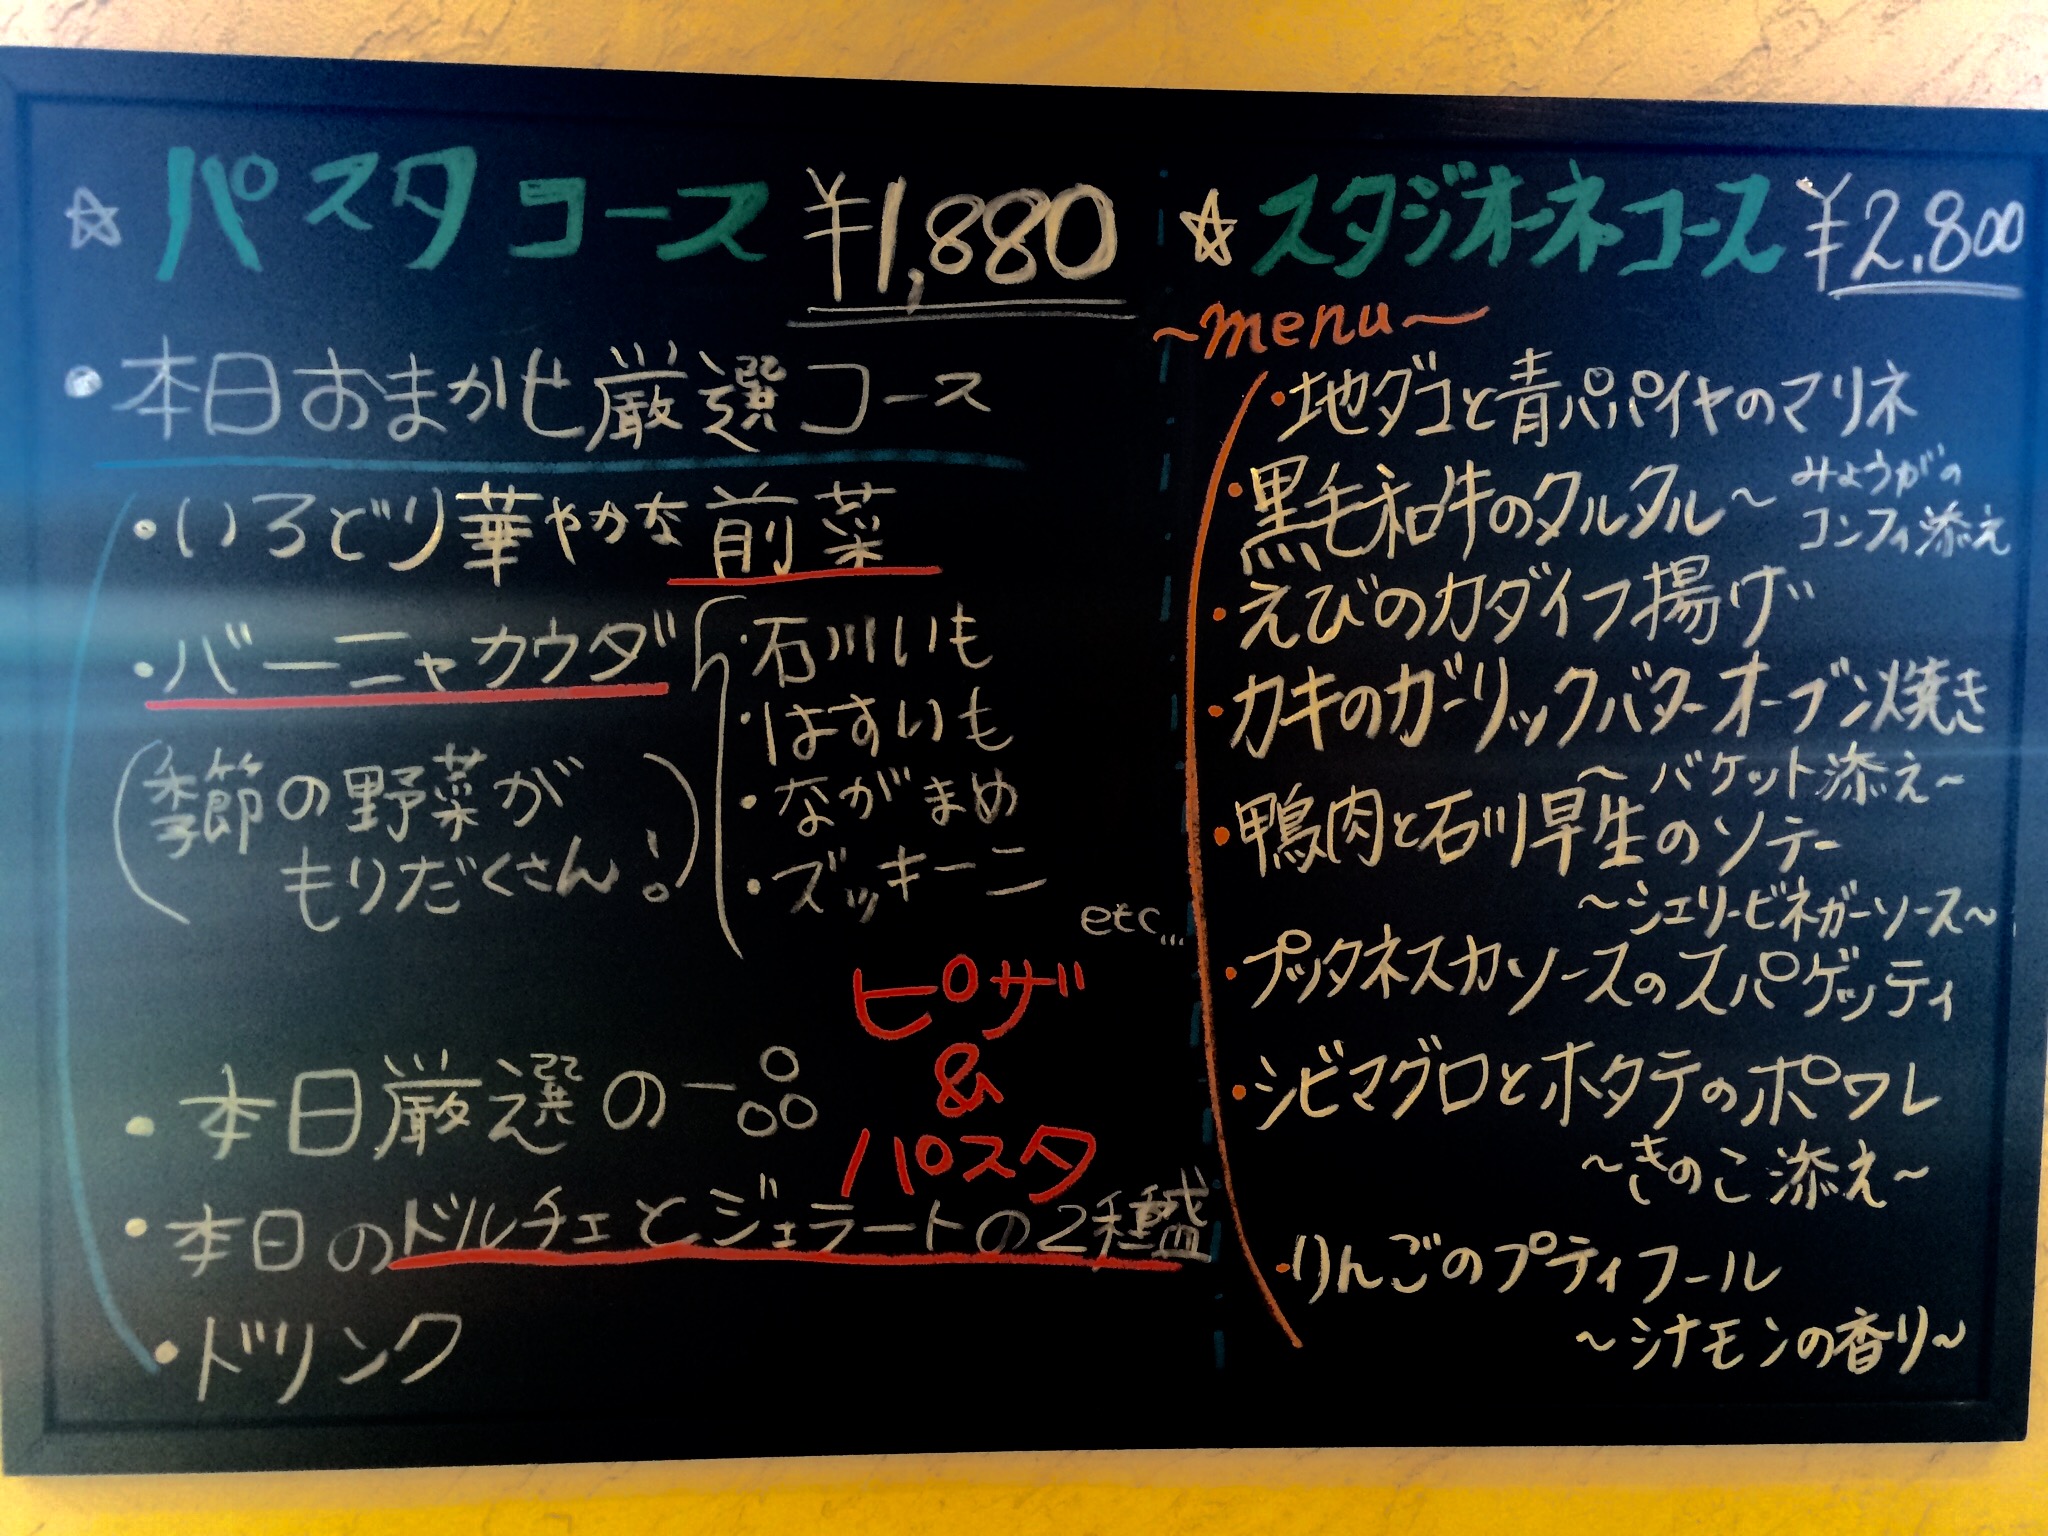 ☆ パスタコース ¥1,880
・本日おまかせ厳選コース
・いろどり華やかな前菜
・バーニャカウダ
・石川いも
・はすいも
・ながまめ
・ズッキーニ
etc...
(季節の野菜が
もりだくさん!)
ピザ
&
パスタ
・本日厳選の一品
・本日のドルチェとジェラートの2種盛
・ドリンク
☆ スタジオーネコース ¥2,800
~menu~
・地ダコと青パパイヤのマリネ
・黒毛和牛のタルタル~みょうがの
コンフィ添え
・えびのカダイフ揚げ
・カキのガーリックバターオーブン焼き
~バケット添え~
・鴨肉と石川早生のソテー
~シェリービネガーソース~
・プッタネスカソースのスパゲッティ
・シビマグロとホタテのポワレ
~きのこ添え~
・りんごのプティフール
~シナモンの香り~